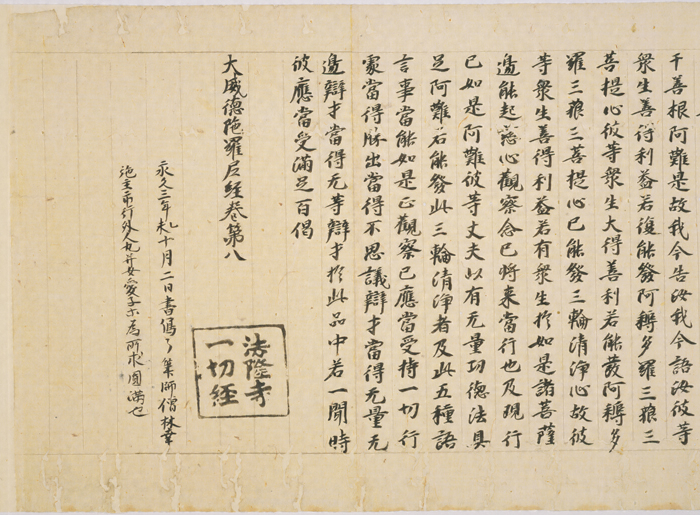 千善根阿難是故我今告汝我今語汝彼等
衆生善得利益若復能發阿耨多羅三藐三
菩提心彼等衆生大得善利若能發阿耨多
羅三藐三菩提心已能發三輪清淨心故彼
等衆生善得利益若有衆生於如是諸菩薩
邊能起慈心觀察念已將来當行也及現行
已如是阿難彼等丈夫以有无量功德法具
足阿難若能發此三輪清淨者及此五種語
言事當能如是正觀察已應當受持一切行
處當得勝出當得不思議辯才當得无量无
邊辯才當得无等辯才於此品中若一聞時
彼應當受滿足百偈
大威德陁羅尼経巻第八
永久三年 十月二日書寫了 僧林幸
施主 為所求圓満也
法隆寺
一切経